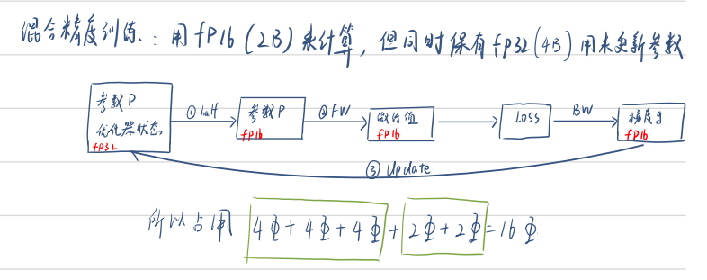 混合精度训练.: 用fp16(2B)来计算, 但同时保有fp32(4B)用来更新参数
参数P
优化器状态,
fp32
①half
参数P
fp16
②FW
激活值
fp16
Loss
BW
梯度g
fp16
③Update
所以占用 4Φ+4Φ+4Φ+2Φ+2Φ=16Φ